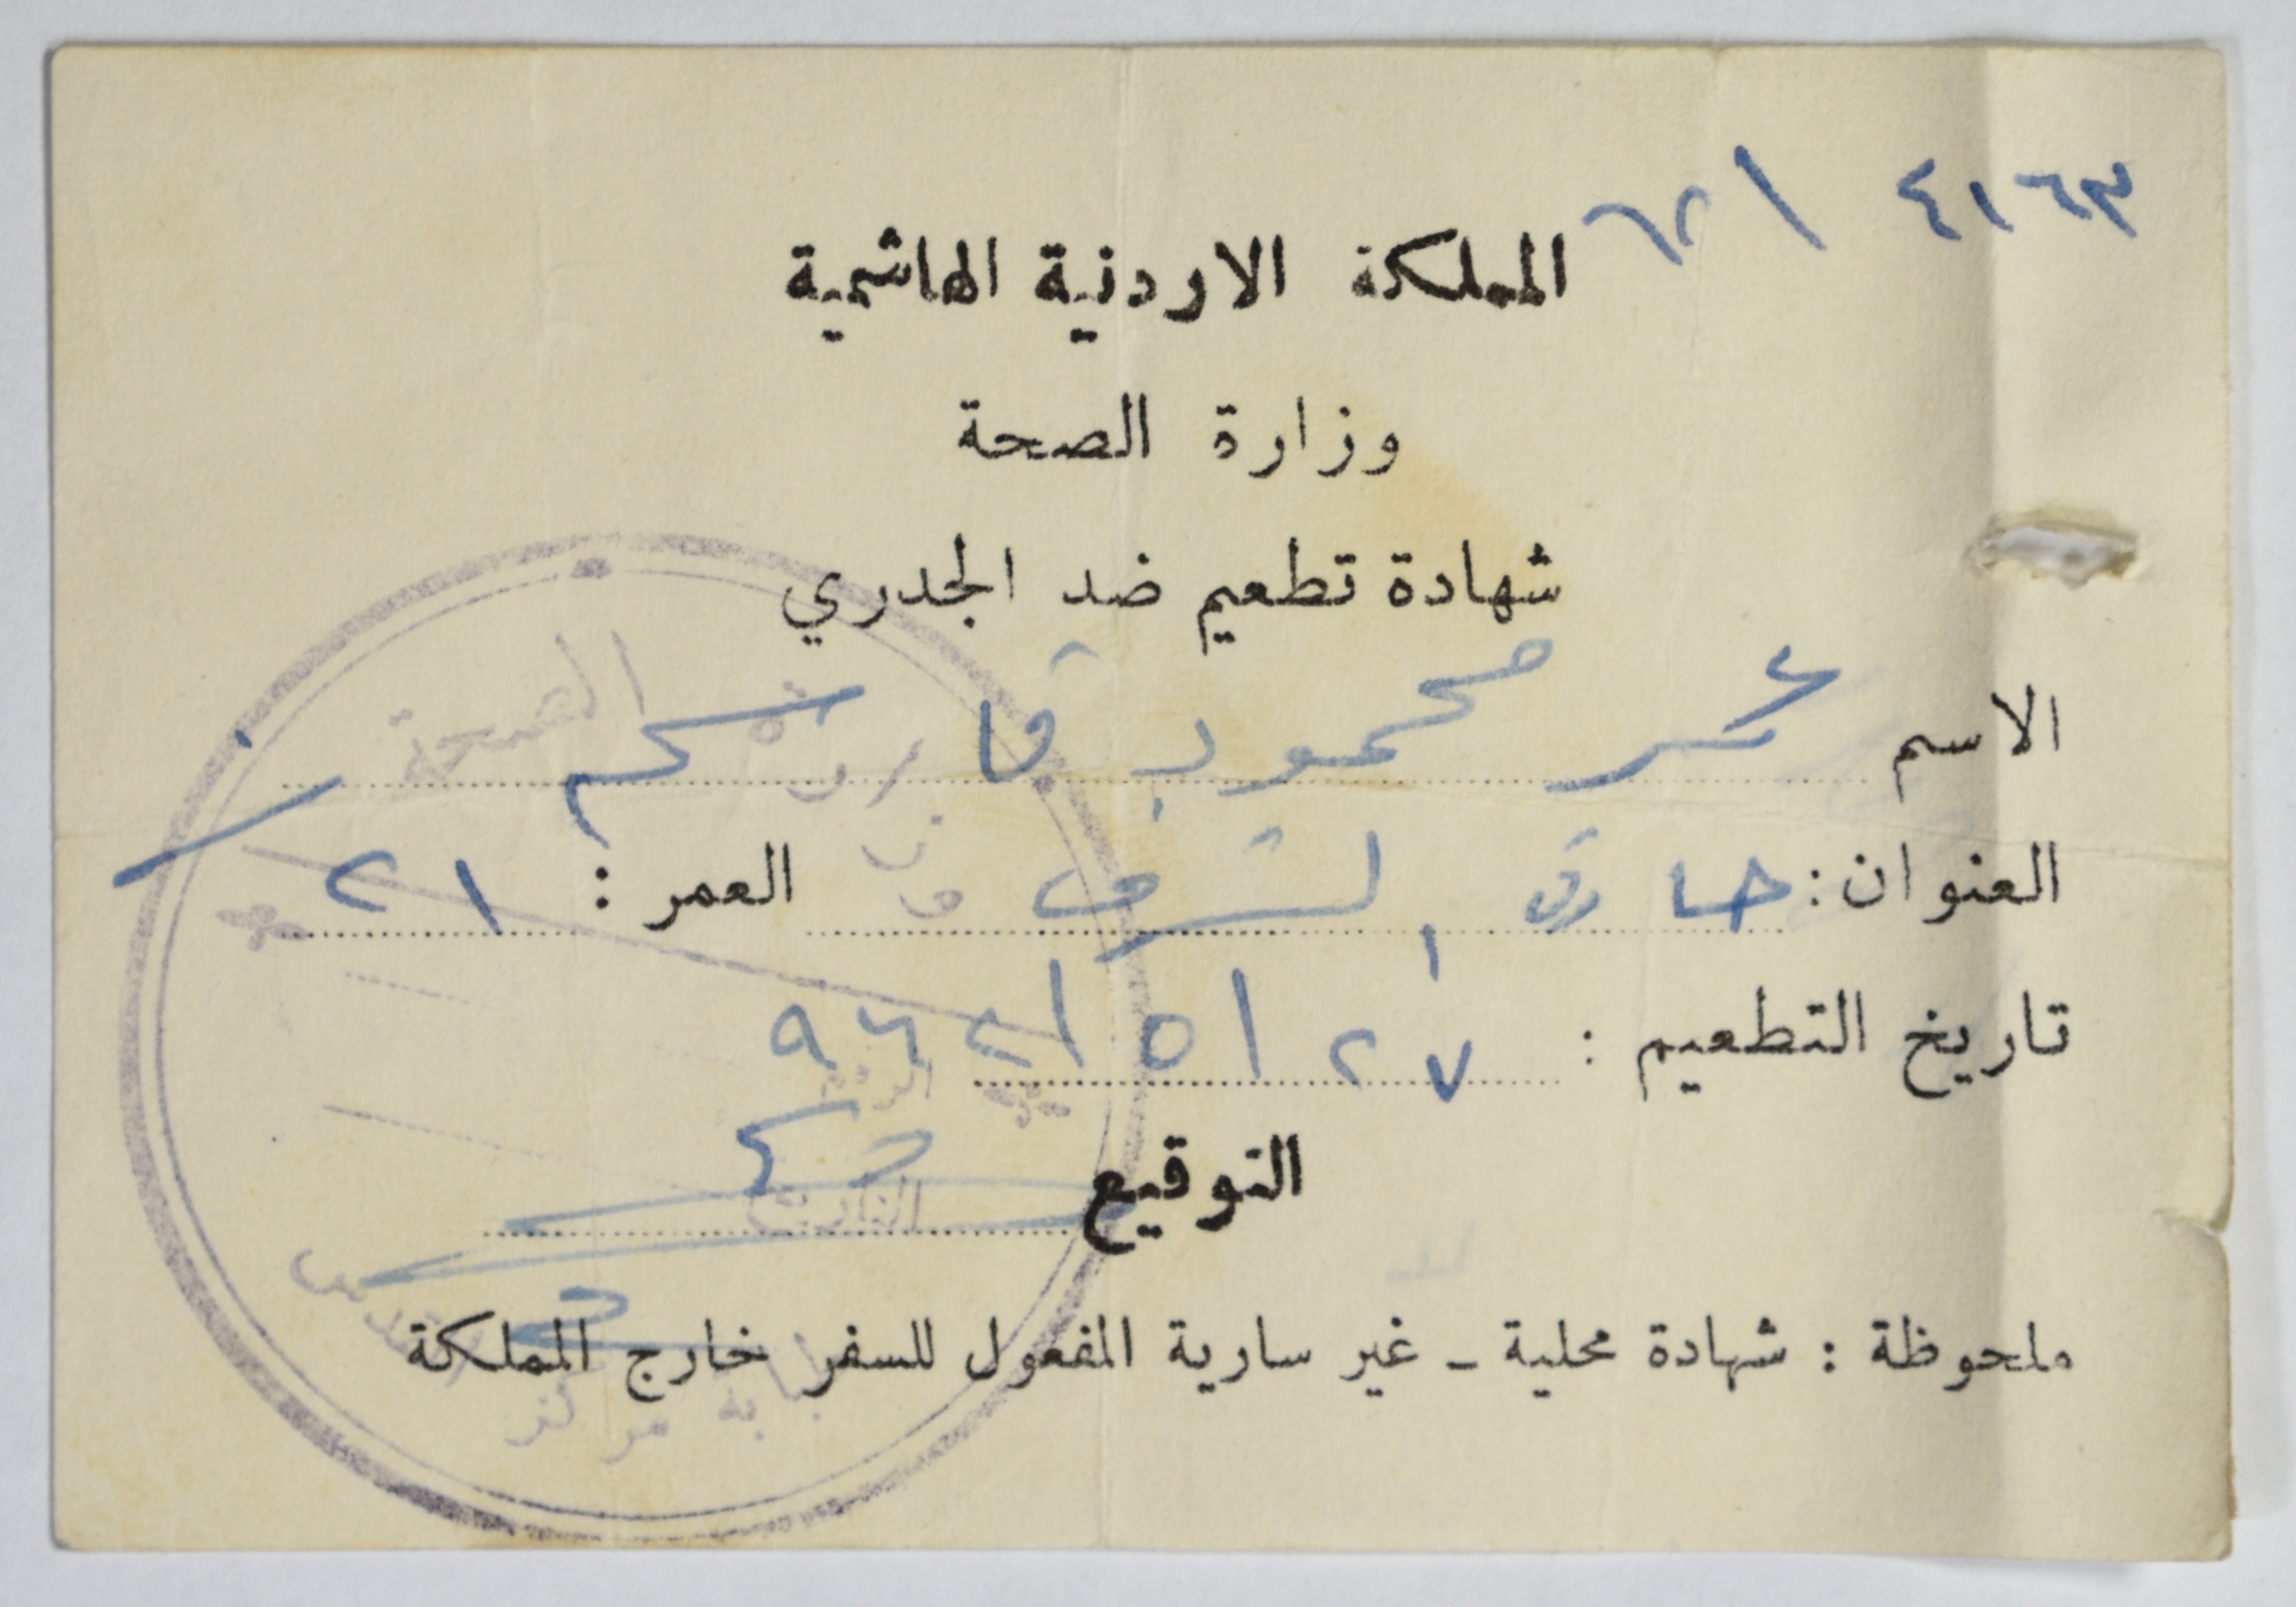 ٤١٦٣ / ٦٢
المملكة الاردنية الهاشمية
وزارة الصحة
شهادة تطعيم ضد الجدري
الاسم عمر محمود قاسم
العنوان: حارة الشرف العمر : ٢١
تاريخ التطعيم : ٢٧/٥/٩٦٢
التوقيع
ملحوظة : شهادة محلية ـ غير سارية المفعول للسفر خارج المملكة
وزارة الصحة
الرقم
التاريخ